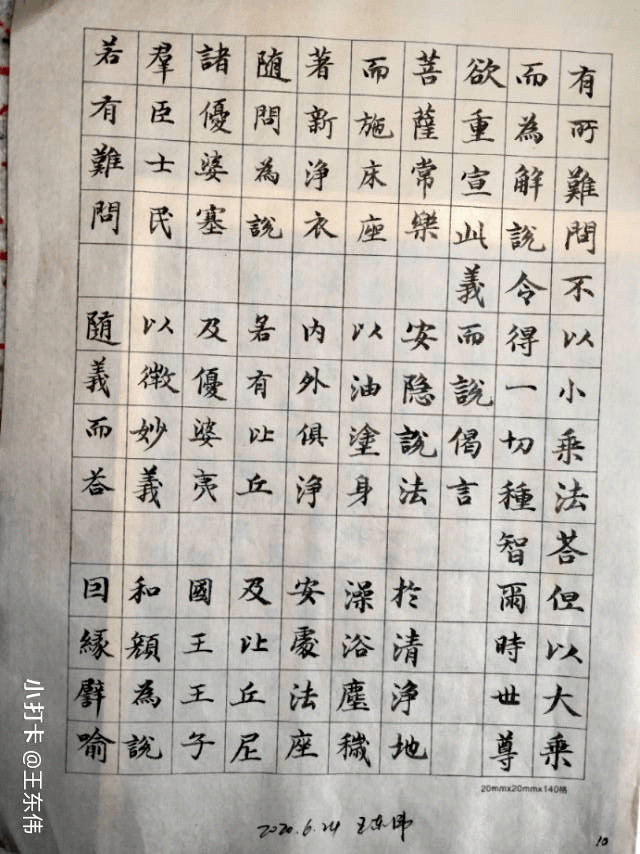 有所難問不以小乘法荅但以大乘
而為解說令得一切種智爾時世尊
欲重宣此義而說偈言
菩薩常樂 安隱說法 於清淨地
而施床座 以油塗身 澡浴塵穢
著新淨衣 內外俱淨 安處法座
随問為說 若有比丘 及比丘尼
諸優婆塞 及優婆夷 國王王子
羣臣士民 以微妙義 和顏為說
若有難問 随義而荅 囙緣譬喻
20mmx20mmx140格
2020.6.24 王东伟
10
小打卡 @王东伟